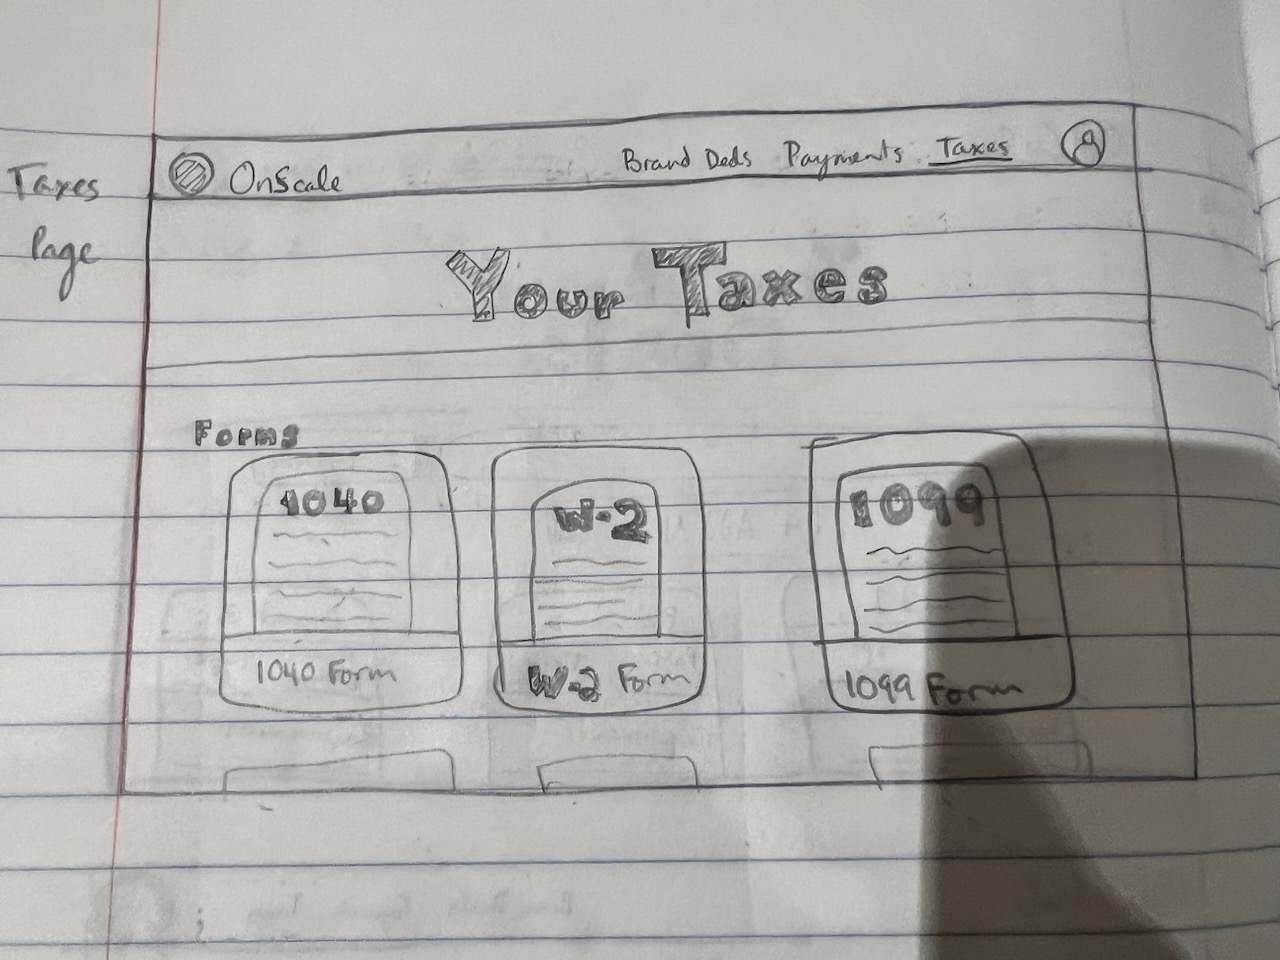 Taxes
Page
OnScale
Brand Deals Payments Taxes
Your Taxes
Forms
1040
W-2
1099
1040 Form
W-2 Form
1099 Form